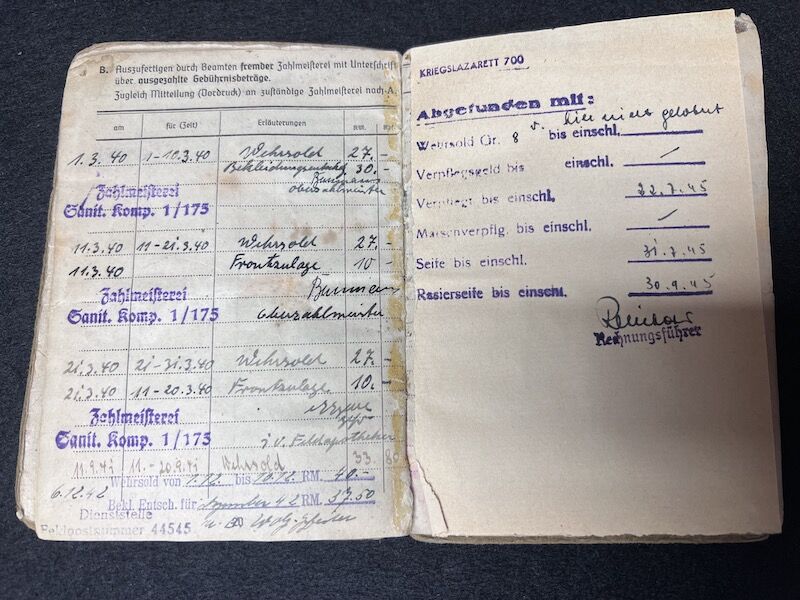 B. Auszufertigen durch Beamten fremder Zahlmeisterei mit Unterschrift
über ausgezahlte Gebührnisbeträge.
Zugleich Mitteilung (Vordruck) an zuständige Zahlmeisterei nach A.
am für (Zeit) Erläuterungen RM.
1.3.40 1-10.3.40 Wehrsold 27.-
30.-
Zahlmeisterei Oberzahlmeister
Sanit. Komp. 1/175
11.3.40 11-21.3.40 Wehrsold 27.-
11.3.40 Frontzulage 10-
Zahlmeisterei
Sanit. Komp. 1/175 Oberzahlmeister
21.3.40 21-31.3.40 Wehrsold 27.-
21.3.40 11-20.3.40 Frontzulage 10.-
Zahlmeisterei
Sanit. Komp. 1/175 i.V. Feldapotheker
11.-20.9. Wehrsold 33. 80
Wehrsold von 1.12. bis 10.12. RM. 40.-
6.12.42 Bekl. Entsch. für 42 RM. 37.50
Dienststelle
Feldpostnummer 44545
KRIEGSLAZARETT 700
Abgefunden mit:
hier nicht gelöhnt
Wehrsold Gr. 8 bis einschl.
Verpflegsgeld bis einschl. /
Verpflegt bis einschl. 22.7.45
Marschverpflg. bis einschl. /
Seife bis einschl. 31.7.45
Rasierseife bis einschl. 30.9.45
Rechnungsführer